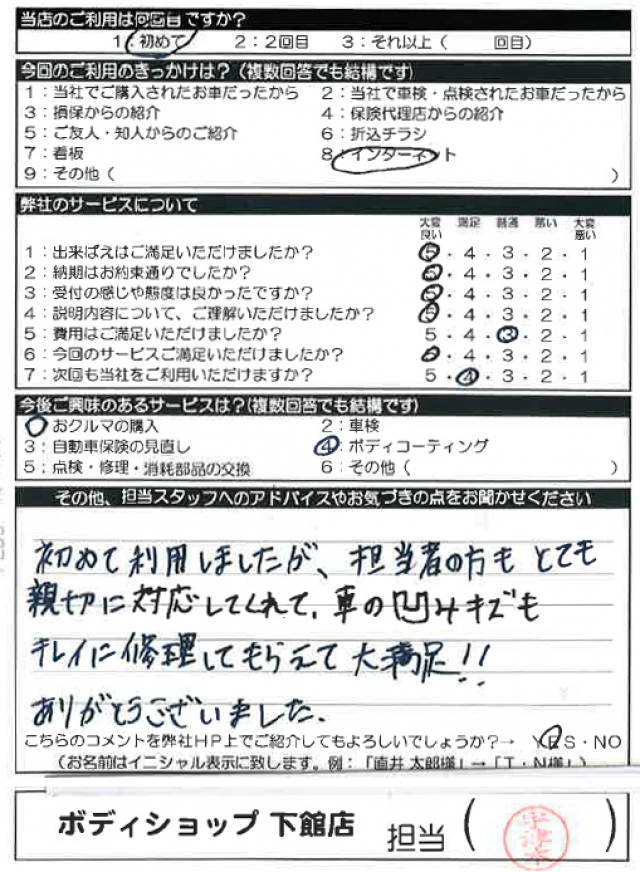 当店のご利用は何回目ですか？
1：初めて　2：2回目　3：それ以上（　　回目）
今回のご利用のきっかけは？（複数回答でも結構です）
1：当社でご購入されたお車だったから　2：当社で車検・点検されたお車だったから
3：損保からの紹介　4：保険代理店からの紹介
5：ご友人・知人からのご紹介　6：折込チラシ
7：看板　8：インターネット
9：その他（　　）
弊社のサービスについて
大変良い　満足　普通　悪い　大変悪い
1：出来ばえはご満足いただけましたか？　5・4・3・2・1
2：納期はお約束通りでしたか？　5・4・3・2・1
3：受付の感じや態度は良かったですか？　5・4・3・2・1
4：説明内容について、ご理解いただけましたか？　5・4・3・2・1
5：費用はご満足いただけましたか？　5・4・3・2・1
6：今回のサービスご満足いただけましたか？　5・4・3・2・1
7：次回も当社をご利用いただけますか？　5・4・3・2・1
今後ご興味のあるサービスは？（複数回答でも結構です）
おクルマの購入　2：車検
3：自動車保険の見直し　4：ボディコーティング
5：点検・修理・消耗部品の交換　6：その他（　　）
その他、担当スタッフへのアドバイスやお気づきの点をお聞かせください
初めて利用しましたが、担当者の方もとても
親切に対応してくれて、車の凹みキズも
キレイに修理してもらえて大満足!!
ありがとうございました.
こちらのコメントを弊社HP上でご紹介してもよろしいでしょうか？→　YES・NO
（お名前はイニシャル表示に致します。例：「直井 太郎様」→「T・N様」）
ボディショップ 下館店　担当（　　）